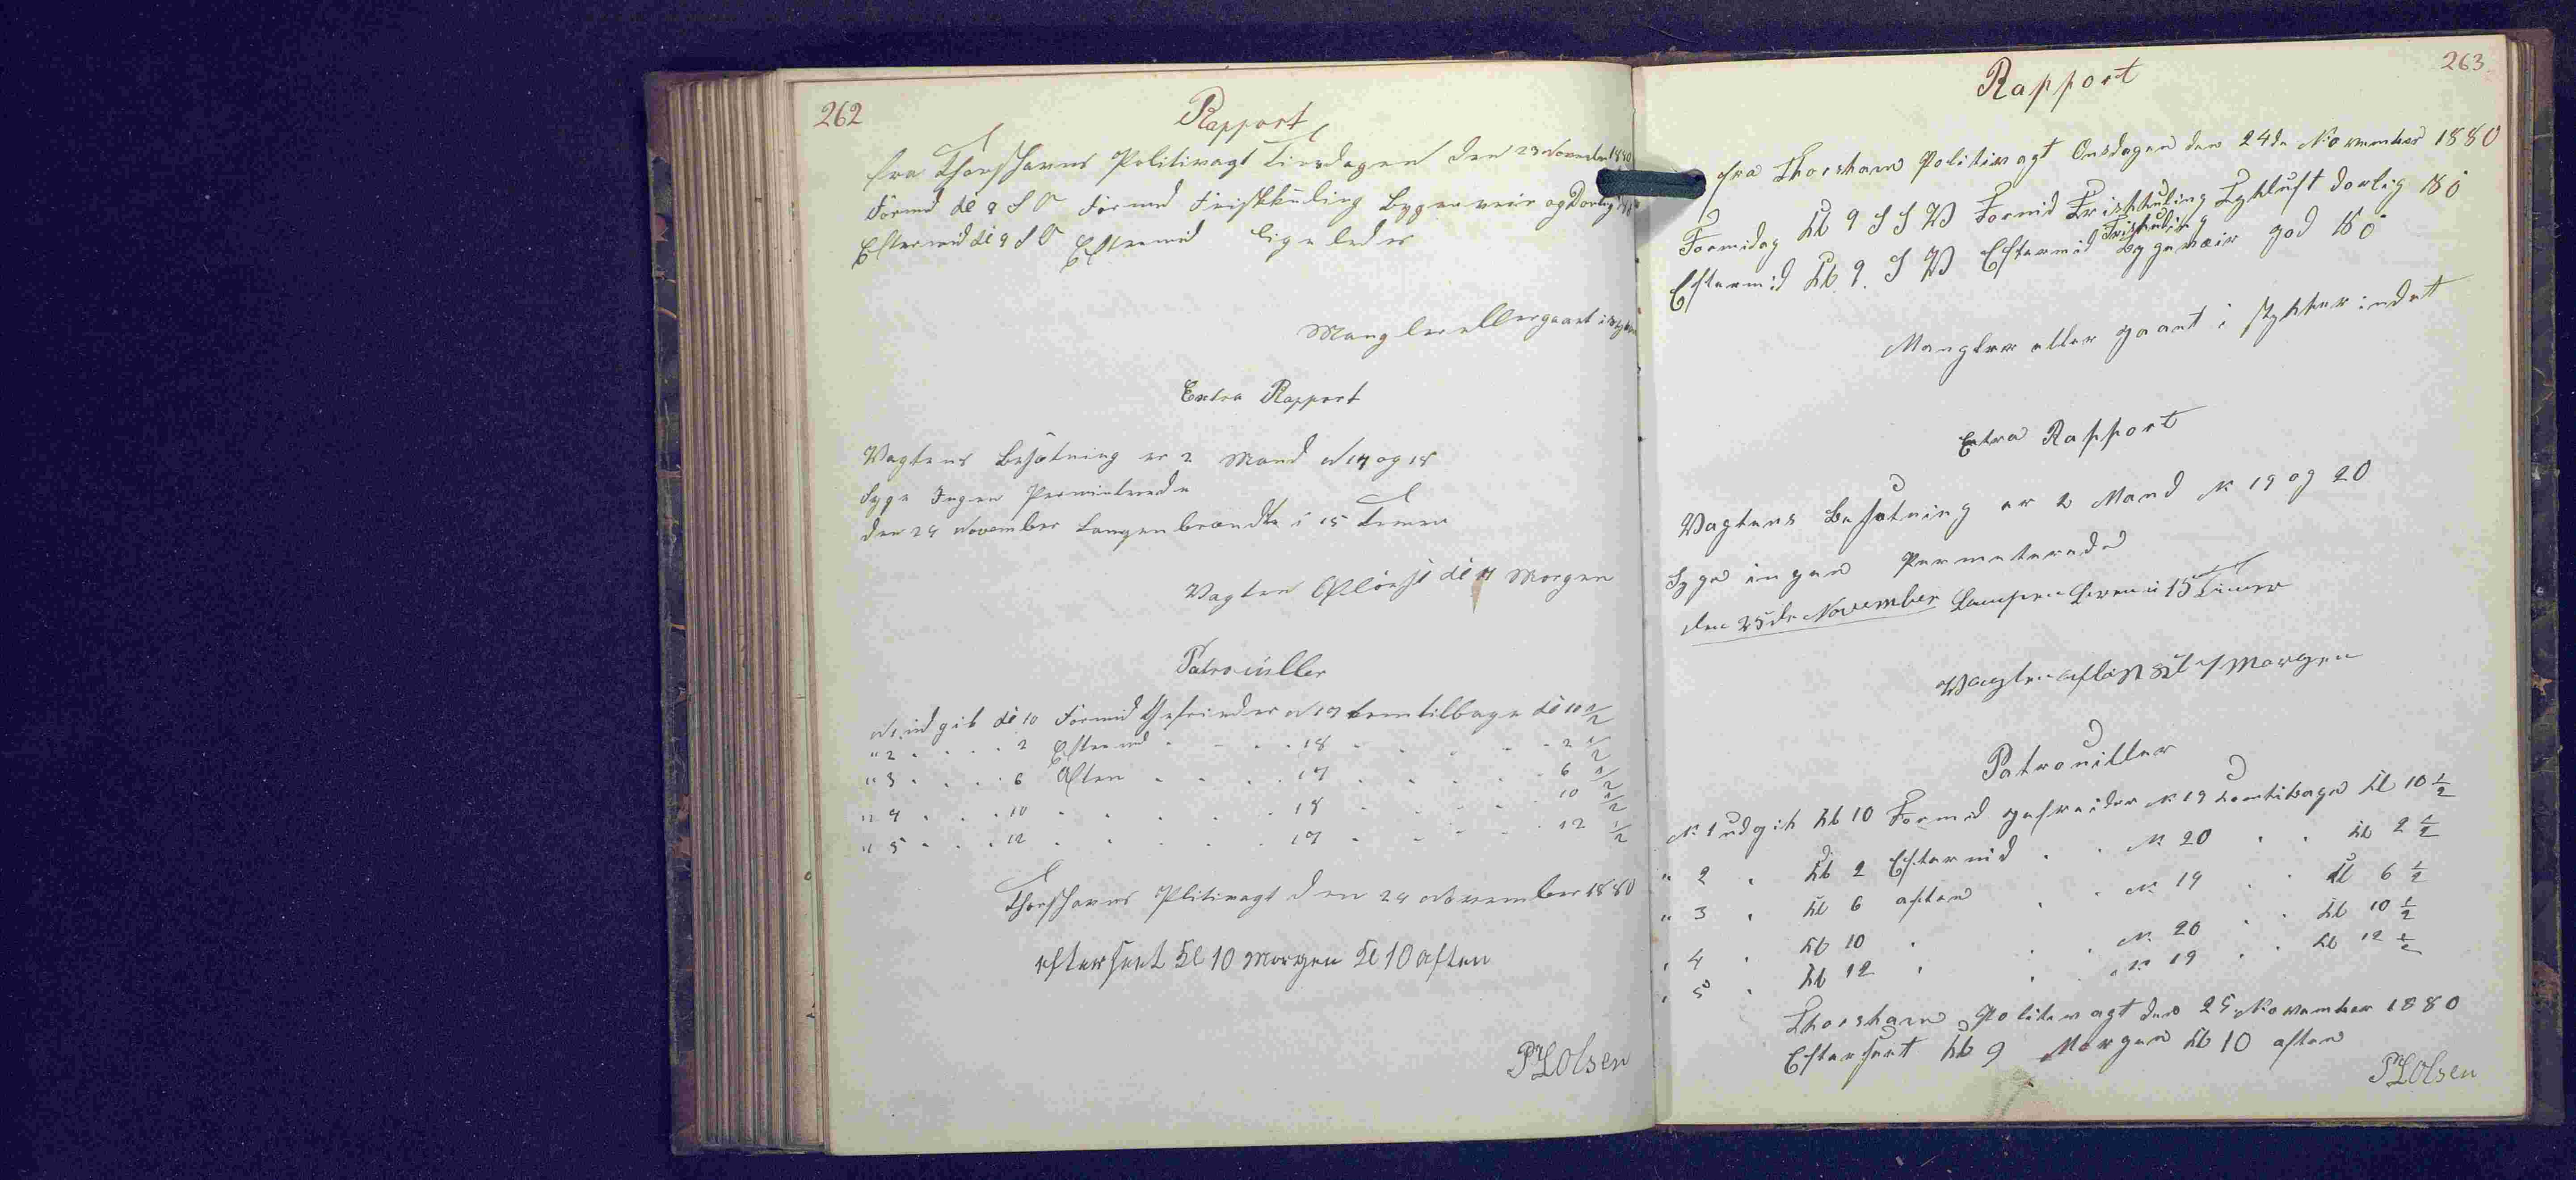 262
Rapport
fra Thorshavns Politivagt Tirsdagen den 23 November 1880
Formd Kl 9 S O Formd Friskkuling Bygeveir og Dorlig
Eftermid Kl 9 S O Eftermid ligeledes
Mangler eller gaaet i Stykker
Extra Rapport
Vagtens Besætning er 2 Mand N 17 og 18
Syge Ingen Permiterede
den 24 November Lampen brændte i 15 Timer
Vagten Afløst Kl 7 Morgen
Patrouiller
N 1 udgik Kl 10 Formid Gefreider N 17 kom tilbage Kl 10 1/2
" 2 . . . . 2 Eftermd . . . 18 . . . . . 2 1/2
" 3 . . . . 6 Aften . . . . 17 . . . . . 6 1/2
" 4 . . . 10 . . . . . . 18 . . . . . 10 1/2
" 5 . . . 12 . . . . . . 17 . . . . . 12 1/2
Thorshavns Plitivagt den 24 November 1880
efterseet Kl 10 Morgen Kl 10 aften
P Olsen
263
Rapport
fra Thorshavn Politivagt Onsdagen den 24de November 1880
Formidag Kl 9 S S W Formid Friskkuling Tykluft dorlig
Friskkuling
Eftermid Kl 9. S W Eftermid Bygeveir god
Mangler eller gaaet i stykker indet
Extra Rapport
Vagtens Besætning er 2 Mand N 19 og 20
Syge ingen Permeterede
den 25de November Lampen i 15 Timer
Vagten afløst Kl 7 Morgen
Patrouiller
N 1 udgik Kl 10 Formid gefreider N 19 komtibage Kl 10 1/2
" 2 . Kl 2 Eftermid . . N 20 . . Kl 2 1/2
" 3 . Kl 6 aften . . N 19 . . Kl 6 1/2
" 4 . Kl 10 . . . N 20 . . Kl 10 1/2
" 5 . Kl 12 . . . N 19 . . Kl 12 1/2
Thorshavn Politivagt den 25 November 1880
Efterseet Kl 9 Morgen Kl 10 aften
P Olsen